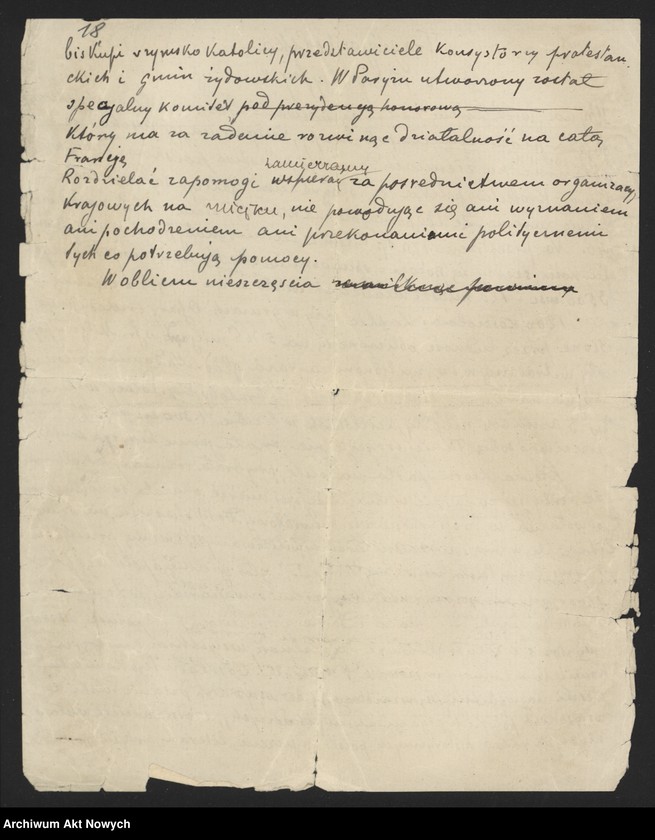 18
biskupi rzymsko katolicy, przedstawiciele konsystorzy protestan
ckich i gmin żydowskich. W Paryżu utworzony został
specjalny komitet pod prezydencją honorową
który ma za zadanie rozwinąć działalność na całą
Francję
zamierzamy
Rozdzielać zapomogi wspierać za pośrednictwem organizacyj
krajowych na miejscu, nie powodując się ani wyznaniem
ani pochodzeniem ani przekonaniami politycznemi
tych co potrzebują pomocy.
W obliczu nieszczęścia
Archiwum Akt Nowych